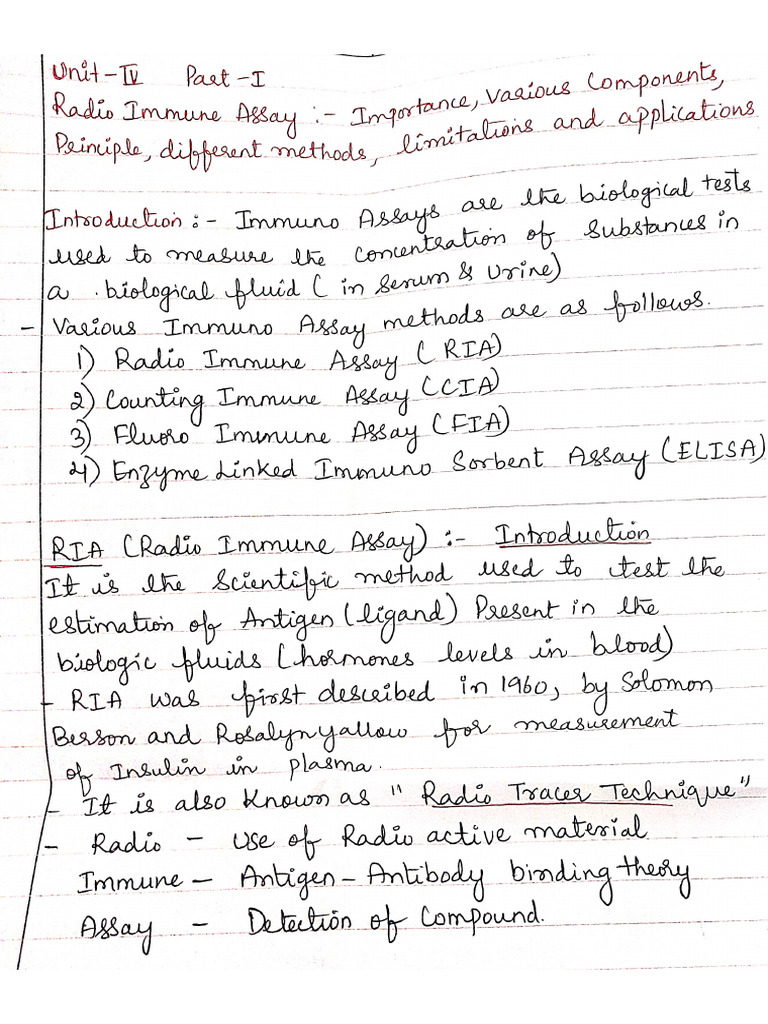 Unit-IV Part-I
Radio Immune Assay :- Importance, Various Components,
Principle, different methods, limitations and applications
Introduction :- Immuno Assays are the biological tests
used to measure the concentration of substances in
a biological fluid ( in serum & Urine)
- Various Immuno Assay methods are as follows.
1) Radio Immune Assay ( RIA)
2) Counting Immune Assay (CIA)
3) Fluoro Immune Assay (FIA)
4) Enzyme Linked Immuno Sorbent Assay (ELISA)
RIA (Radio Immune Assay) :- Introduction
It is the Scientific method used to test the
estimation of Antigen (ligand) Present in the
biologic fluids (hormones levels in blood)
- RIA was first described in 1960, by Solomon
Berson and Rosalyn yallow for measurement
of Insulin in plasma.
- It is also known as " Radio Tracer Technique"
- Radio - Use of Radio active material
Immune - Antigen - Antibody binding theory
Assay - Detection of Compound.